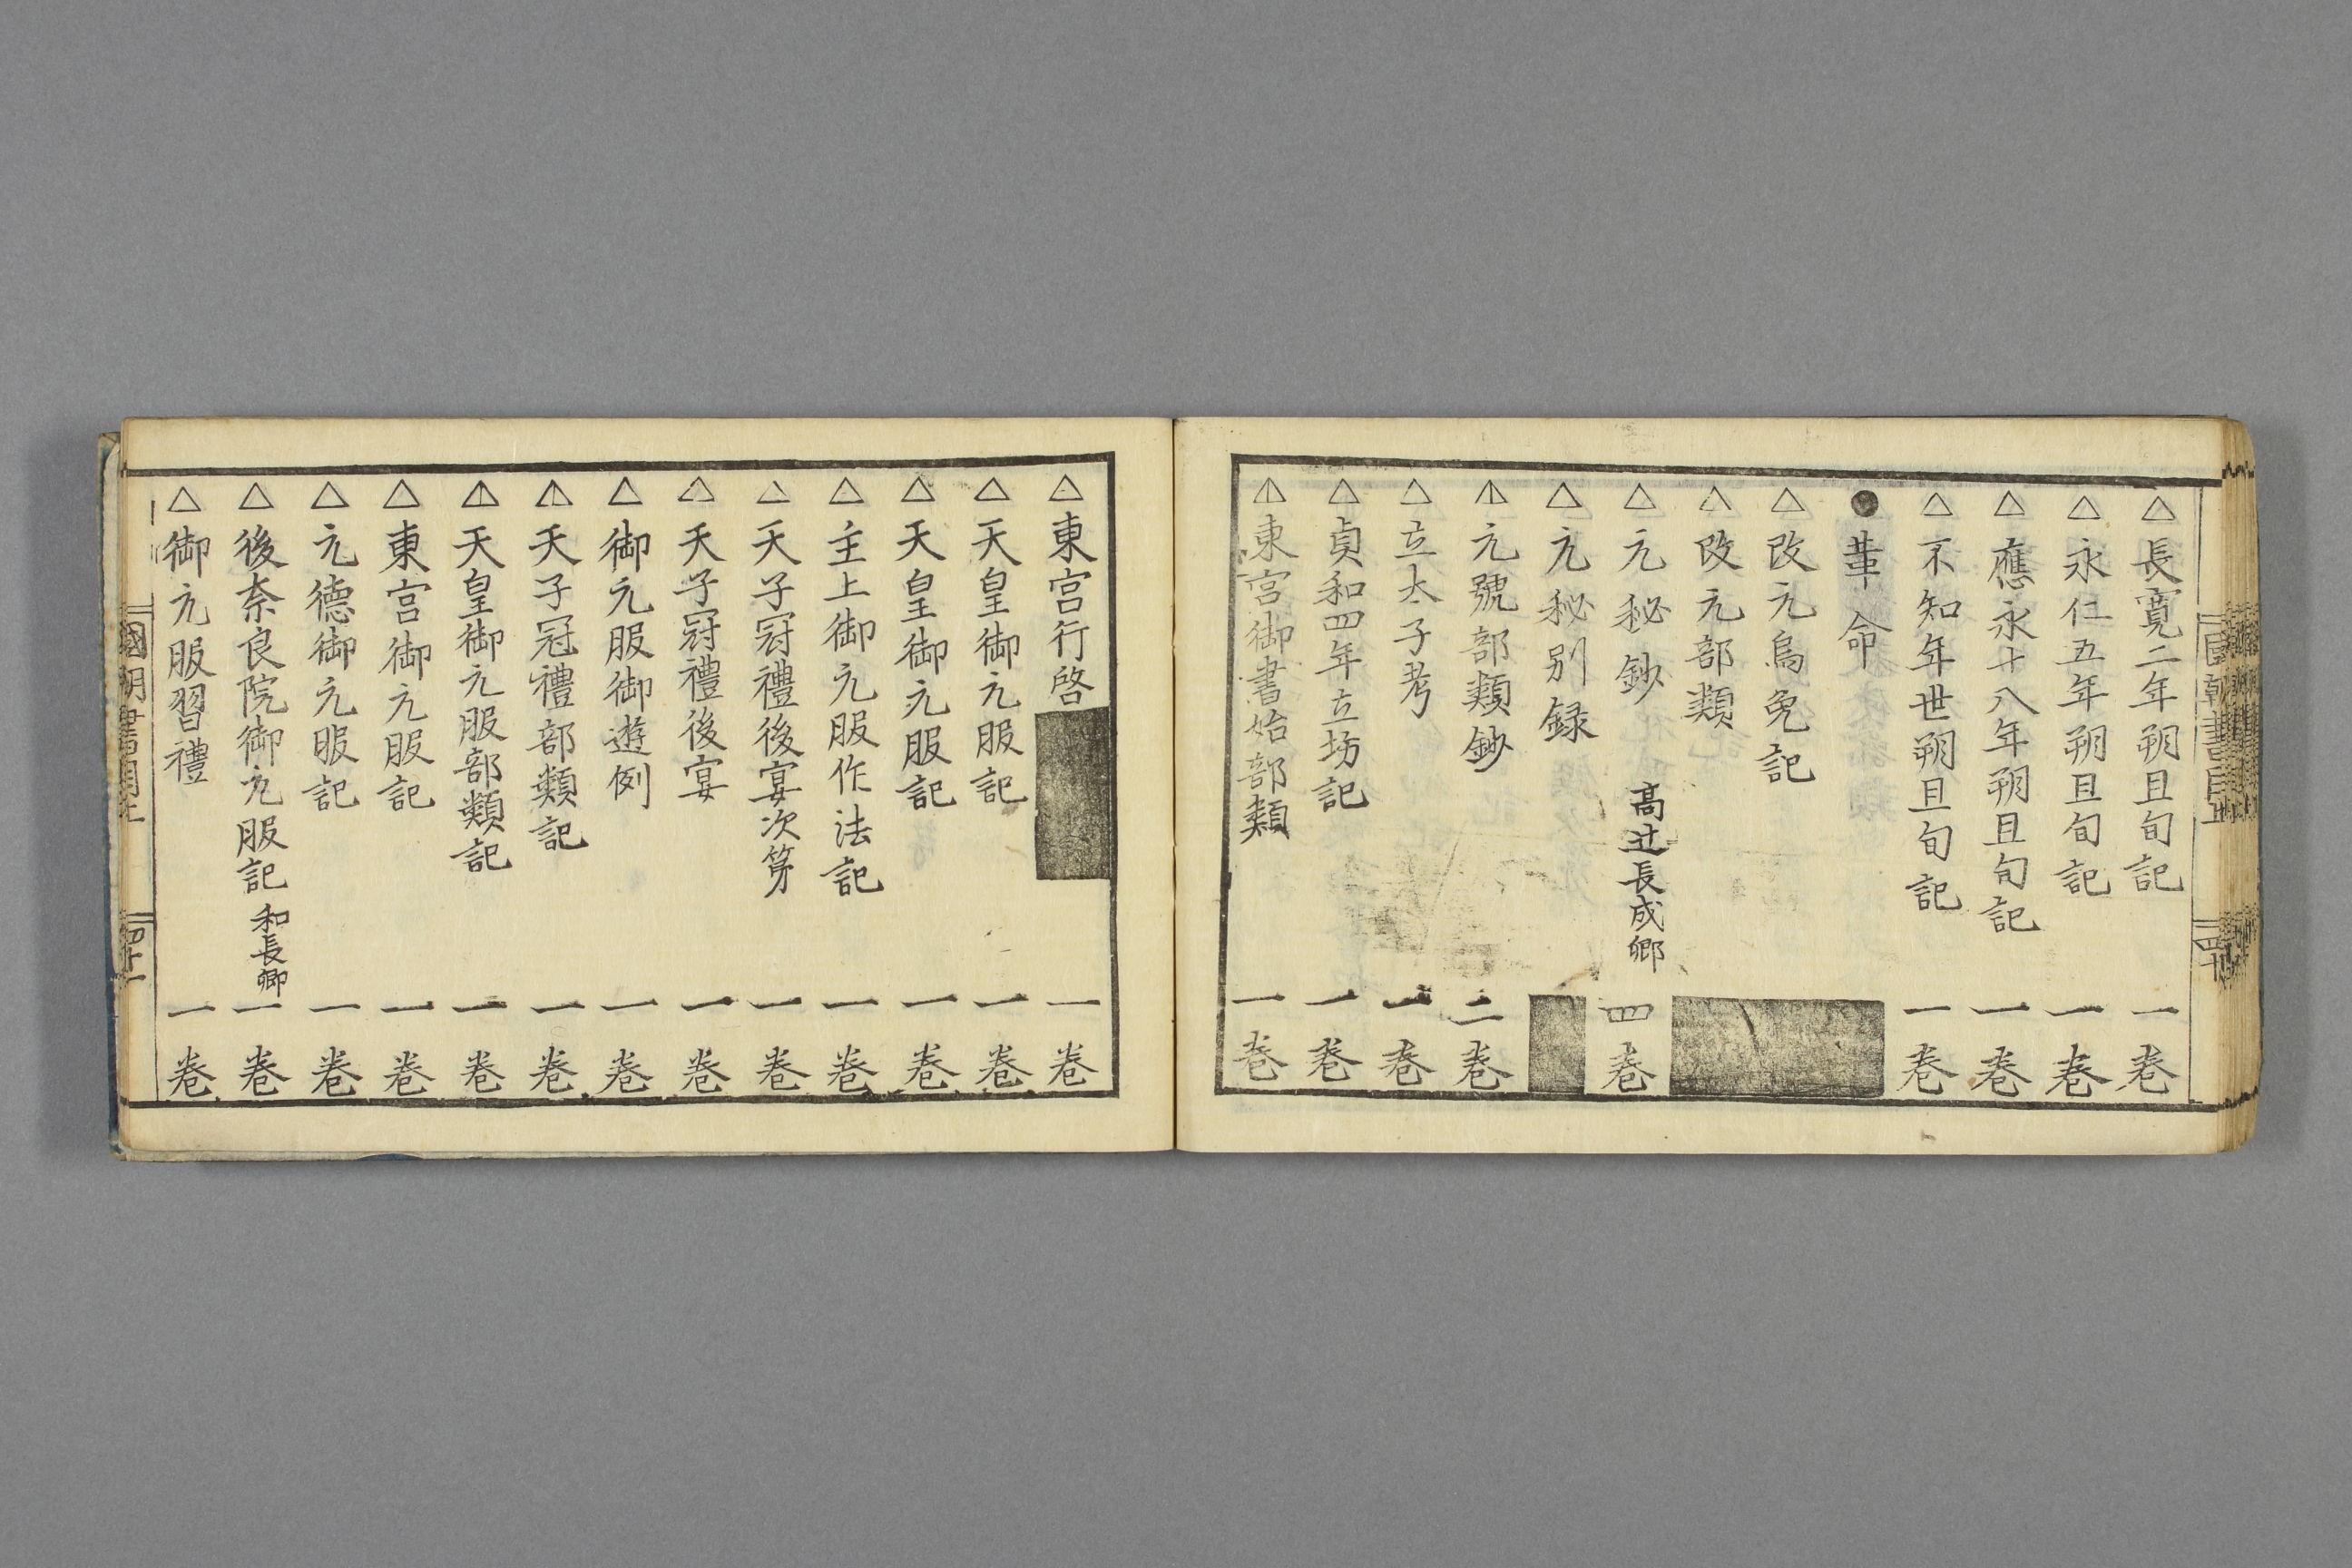 △長寛二年朔旦旬記 一巻
△永仁五年朔旦旬記 一巻
△應永十八年朔旦旬記 一巻
△不知年世朔旦旬記 一巻
●革命
△改元烏兔記
△改元部類
△元秘鈔 高辻長成卿 四巻
△元秘別録
△元號部類鈔 二巻
△立太子考 一巻
△貞和四年立坊記 一巻
△東宮御書始部類 一巻
△東宮行啓 一巻
△天皇御元服記 一巻
△天皇御元服記 一巻
△主上御元服作法記 一巻
△天子冠禮後宴次第 一巻
△天子冠禮後宴 一巻
△御元服御遊例 一巻
△天子冠禮部類記 一巻
△天皇御元服部類記 一巻
△東宮御元服記 一巻
△元德御元服記 一巻
△後奈良院御元服記 和長卿 一巻
△御元服習禮 一巻